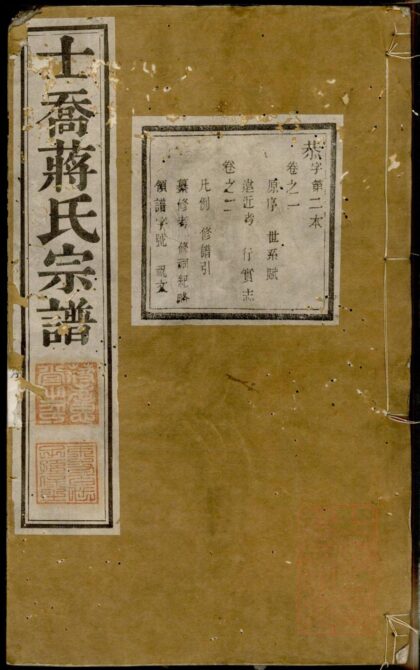 士喬蔣氏宗譜
恭字第二本
卷之一
原序 世系賦
遠近考 行實志
卷之二
凡例 修譜引
纂修考 修祠紀略
領譜字號